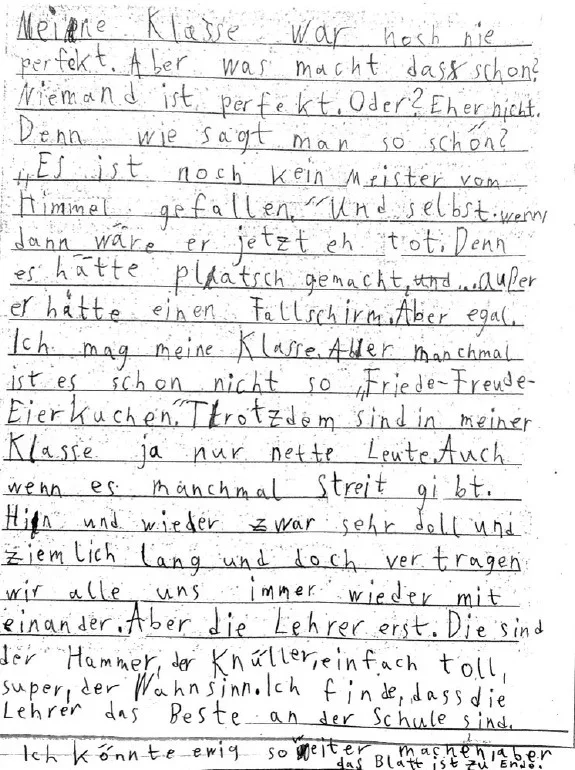 Meine Klasse war noch nie
perfekt. Aber was macht dass schon?
Niemand ist perfekt. Oder? Eher nicht.
Denn wie sagt man so schön?
„Es ist noch kein Meister vom
Himmel gefallen." Und selbst wenn,
dann wäre er jetzt eh tot. Denn
es hätte platsch gemacht, und... außer
er hätte einen Fallschirm. Aber egal.
Ich mag meine Klasse. Aber manchmal
ist es schon nicht so „Friede-Freude-
Eierkuchen." Trotzdem sind in meiner
Klasse ja nur nette Leute. Auch
wenn es manchmal Streit gibt.
Hin und wieder zwar sehr doll und
ziemlich lang und doch vertragen
wir alle uns immer wieder mit
einander. Aber die Lehrer erst. Die sind
der Hammer, der Knüller, einfach toll,
super, der Wahnsinn. Ich finde, dass die
Lehrer das Beste an der Schule sind.
Ich könnte ewig so weiter machen, aber
das Blatt ist zu Ende.